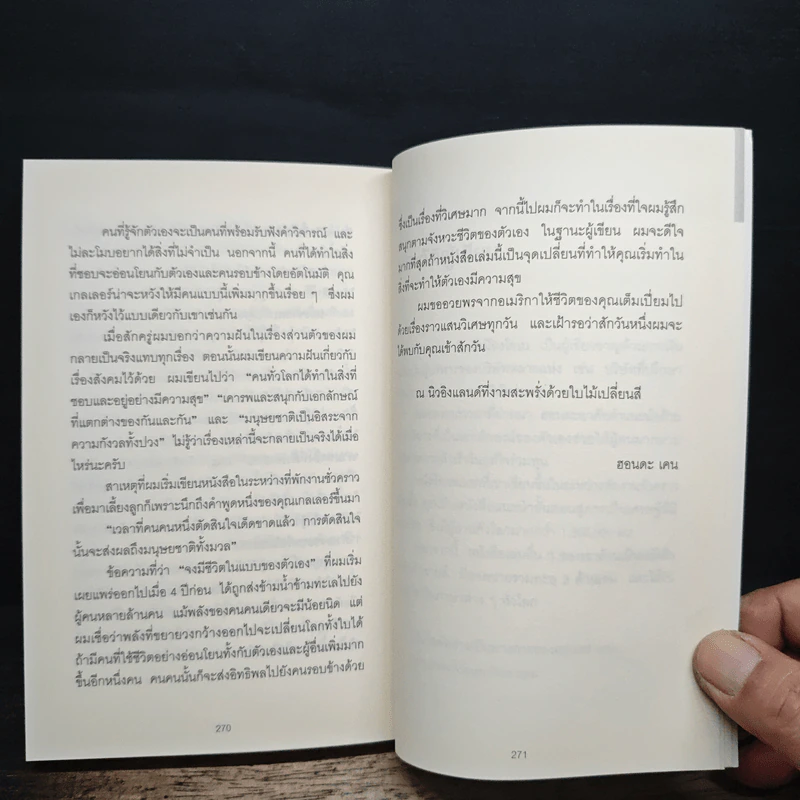 คนที่รู้จักตัวเองจะเป็นคนที่พร้อมรับฟังคำวิจารณ์ และ
ไม่ละโมบอยากได้สิ่งที่ไม่จำเป็น นอกจากนี้ คนที่ได้ทำในสิ่ง
ที่ชอบจะอ่อนโยนกับตัวเองและคนรอบข้างโดยอัตโนมัติ คุณ
เกลเลอร์น่าจะหวังให้มีคนแบบนี้เพิ่มมากขึ้นเรื่อย ๆ ซึ่งผม
เองก็หวังไว้แบบเดียวกับเขาเช่นกัน
เมื่อสักครู่ผมบอกว่าความฝันในเรื่องส่วนตัวของผม
กลายเป็นจริงแทบทุกเรื่อง ตอนนั้นผมเขียนความฝันเกี่ยวกับ
เรื่องสังคมไว้ด้วย ผมเขียนไปว่า “คนทั่วโลกได้ทำในสิ่งที่
ชอบและอยู่อย่างมีความสุข” “เคารพและสนุกกับเอกลักษณ์
ที่แตกต่างของกันและกัน” และ “มนุษยชาติเป็นอิสระจาก
ความกังวลทั้งปวง” ไม่รู้ว่าเรื่องเหล่านี้จะกลายเป็นจริงได้เมื่อ
ไหร่นะครับ
สาเหตุที่ผมเริ่มเขียนหนังสือในระหว่างที่พักงานชั่วคราว
เพื่อมาเลี้ยงลูกก็เพราะนึกถึงคำพูดหนึ่งของคุณเกลเลอร์ขึ้นมา
“เวลาที่คนคนหนึ่งตัดสินใจเด็ดขาดแล้ว การตัดสินใจ
นั้นจะส่งผลถึงมนุษยชาติทั้งมวล”
ข้อความที่ว่า “จงมีชีวิตในแบบของตัวเอง” ที่ผมเริ่ม
เผยแพร่ออกไปเมื่อ 4 ปีก่อน ได้ถูกส่งข้ามน้ำข้ามทะเลไปยัง
ผู้คนหลายล้านคน แม้พลังของคนคนเดียวจะมีน้อยนิด แต่
ผมเชื่อว่าพลังที่ขยายวงกว้างออกไปจะเปลี่ยนโลกทั้งใบได้
ถ้ามีคนที่ใช้ชีวิตอย่างอ่อนโยนทั้งกับตัวเองและผู้อื่นเพิ่มมาก
ขึ้นอีกหนึ่งคน คนคนนั้นก็จะส่งอิทธิพลไปยังคนรอบข้างด้วย
270
ซึ่งเป็นเรื่องที่วิเศษมาก จากนี้ไปผมก็จะทำในเรื่องที่ใจผมรู้สึก
สนุกตามจังหวะชีวิตของตัวเอง ในฐานะผู้เขียน ผมจะดีใจ
มากที่สุดถ้าหนังสือเล่มนี้เป็นจุดเปลี่ยนที่ทำให้คุณเริ่มทำใน
สิ่งที่จะทำให้ตัวเองมีความสุข
ผมขออวยพรจากอเมริกาให้ชีวิตของคุณเต็มเปี่ยมไป
ด้วยเรื่องราวแสนวิเศษทุกวัน และเฝ้ารอว่าสักวันหนึ่งผมจะ
ได้พบกับคุณเข้าสักวัน
ณ นิวอิงแลนด์ที่งามสะพรั่งด้วยใบไม้เปลี่ยนสี
ฮอนดะ เคน
271